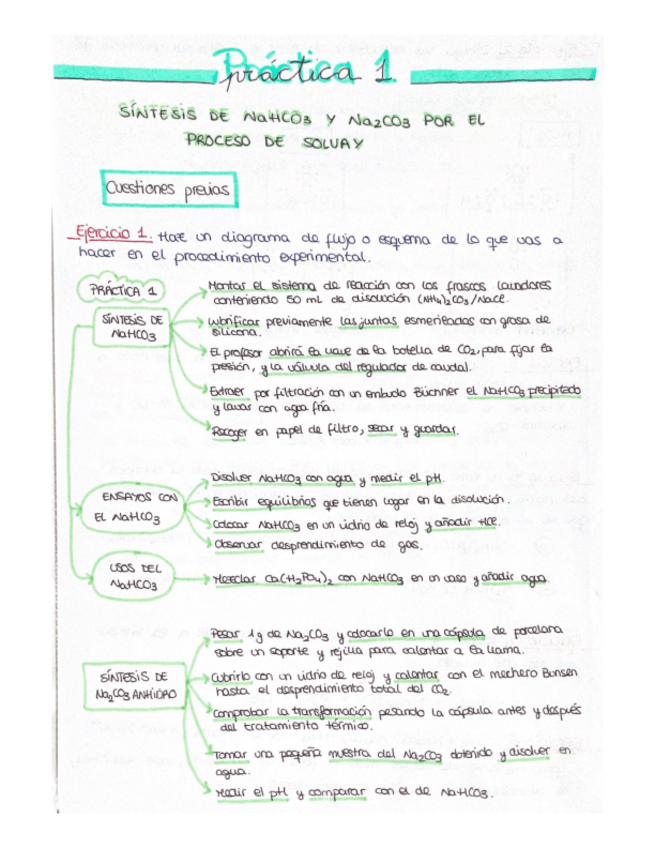 Práctica 1
SÍNTESIS DE NaHCO3 Y Na2CO3 POR EL
PROCESO DE SOLVAY
Cuestiones previas
Ejercicio 1. Hace un diagrama de flujo o esquema de lo que vas a
hacer en el procedimiento experimental.
PRÁCTICA 1
SÍNTESIS DE
NaHCO3
Montar el sistema de reacción con los frascos lavadores
conteniendo 50 mL de disolución (NH4)2CO3/NaCl.
Lubrificar previamente las juntas esmeriladas con grasa de
silicona.
El profesor abrirá la llave de la botella de CO2, para fijar la
presión, y la válvula del regulador de caudal.
Extraer por filtración con un embudo Büchner el NaHCO3 precipitado
y lavar con agua fría.
Recoger en papel de filtro, secar y guardar.
ENSAYOS CON
EL NaHCO3
Disolver NaHCO3 con agua y medir el pH.
Escribir equilibrios que tienen lugar en la disolución.
Colocar NaHCO3 en un vidrio de reloj y añadir HCl.
Observar desprendimiento de gas.
USOS DEL
NaHCO3
Mezclar Ca(H2PO4)2 con NaHCO3 en un vaso y añadir agua.
SÍNTESIS DE
Na2CO3 ANHIDRO
Pesar 1g de Na2CO3 y colocarlo en una cápsula de porcelana
sobre un soporte y rejilla para calentar a la llama.
Cubrirlo con un vidrio de reloj y calentar con el mechero Bunsen
hasta el desprendimiento total del CO2.
Comprobar la transformación pesando la cápsula antes y después
del tratamiento térmico.
Tomar una pequeña muestra del Na2CO3 obtenido y disolver en
agua.
Medir el pH y comparar con el de NaHCO3.